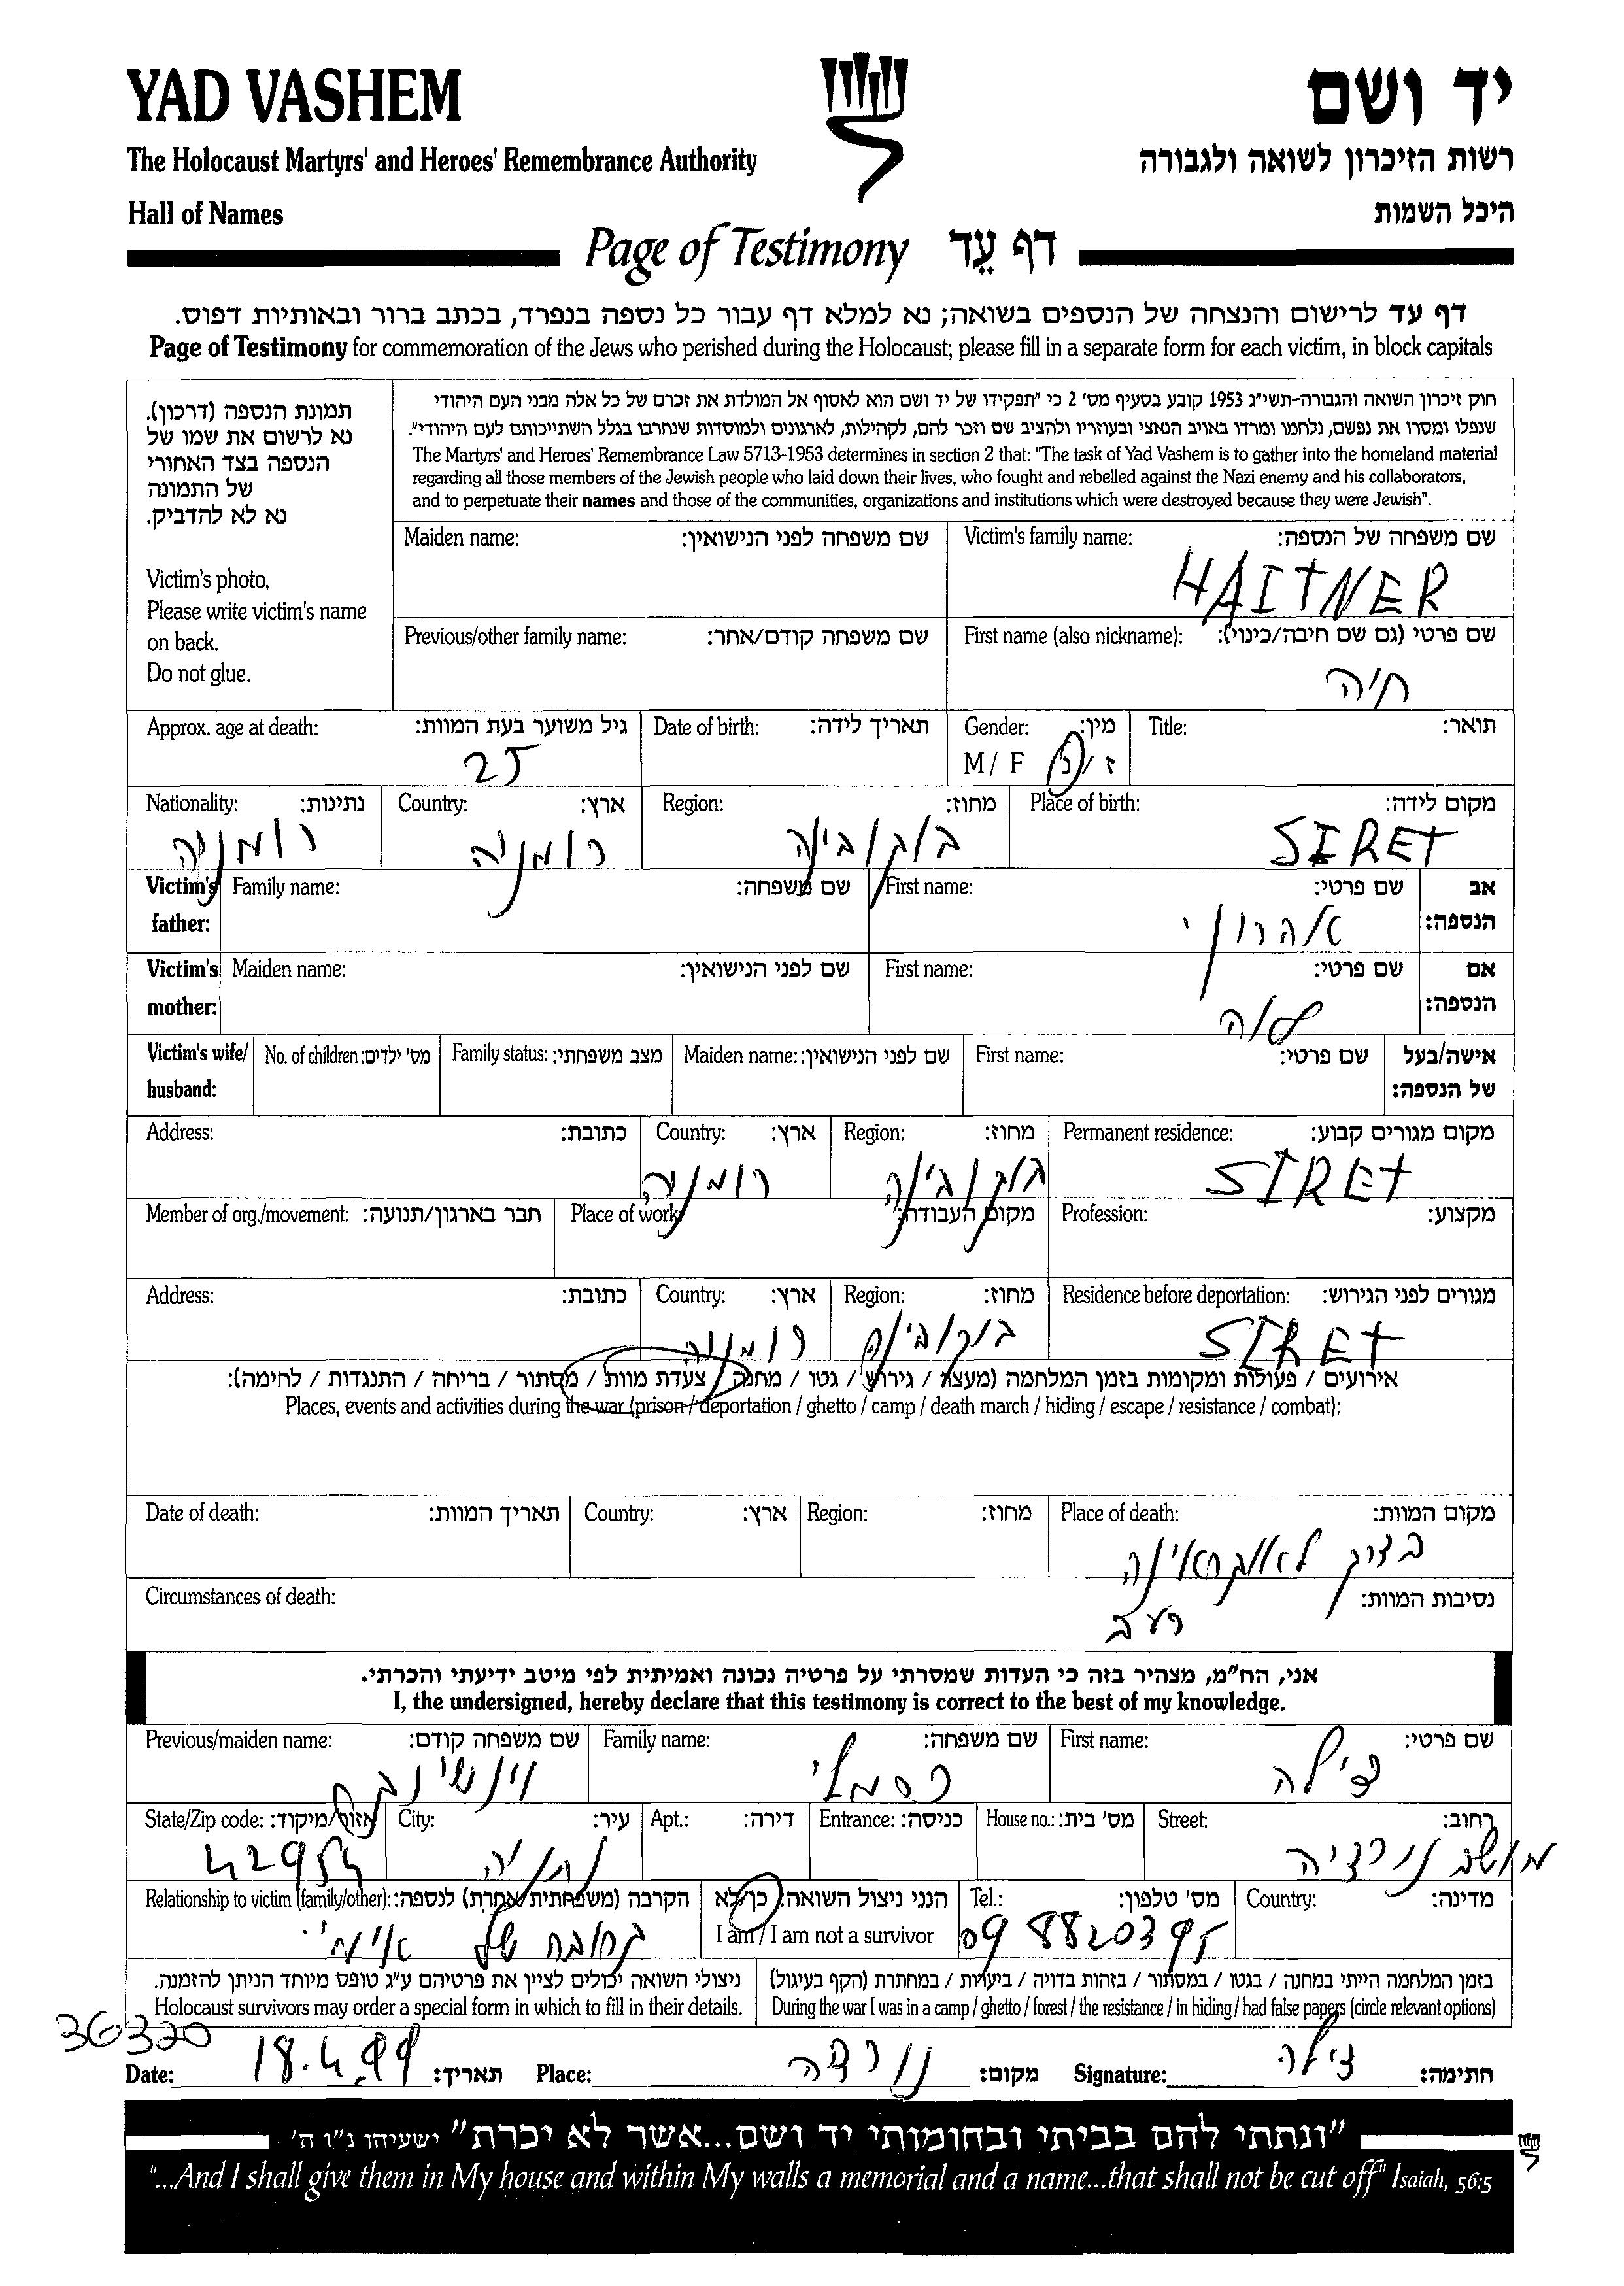 YAD VASHEM
יד ושם
The Holocaust Martyrs' and Heroes' Remembrance Authority
רשות הזיכרון לשואה ולגבורה
Hall of Names
היכל השמות
Page of Testimony דף עֵד
דף עד לרישום והנצחה של הנספים בשואה; נא למלא דף עבור כל נספה בנפרד, בכתב ברור ובאותיות דפוס.
Page of Testimony for commemoration of the Jews who perished during the Holocaust; please fill in a separate form for each victim, in block capitals
תמונת הנספה (דרכון).
נא לרשום את שמו של
הנספה בצד האחורי
של התמונה
נא לא להדביק.
Victim's photo,
Please write victim's name
on back.
Do not glue.
חוק זיכרון השואה והגבורה-תשי"ג 1953 קובע בסעיף מס' 2 כי "תפקידו של יד ושם הוא לאסוף אל המולדת את זכרם של כל אלה מבני העם היהודי
שנפלו ומסרו את נפשם, נלחמו ומרדו באויב הנאצי ובעוזריו ולהציב שם וזכר להם, לקהילות, לארגונים ולמוסדות שנחרבו בגלל השתייכותם לעם היהודי".
The Martyrs' and Heroes' Remembrance Law 5713-1953 determines in section 2 that: "The task of Yad Vashem is to gather into the homeland material
regarding all those members of the Jewish people who laid down their lives, who fought and rebelled against the Nazi enemy and his collaborators,
and to perpetuate their names and those of the communities, organizations and institutions which were destroyed because they were Jewish".
Maiden name: שם משפחה לפני הנישואין:
Victim's family name: שם משפחה של הנספה:
HAITNER
Previous/other family name: שם משפחה קודם/אחר:
First name (also nickname): שם פרטי (גם שם חיבה/כינוי):
חיה
Approx. age at death: גיל משוער בעת המוות:
25
Date of birth: תאריך לידה:
Gender: מין:
M / F ז / נ
Title: תואר:
Nationality: נתינות:
רומניה
Country: ארץ:
רומניה
Region: מחוז:
בוקובינה
Place of birth: מקום לידה:
SIRET
Victim's father: Family name: שם משפחה:
First name: שם פרטי:
אהרון
אב הנספה:
Victim's mother: Maiden name: שם לפני הנישואין:
First name: שם פרטי:
אם הנספה:
Victim's wife/ husband:
No. of children: מס' ילדים:
Family status: מצב משפחתי:
Maiden name: שם לפני הנישואין:
First name: שם פרטי:
אישה/בעל של הנספה:
Address: כתובת:
Country: ארץ:
רומניה
Region: מחוז:
בוקובינה
Permanent residence: מקום מגורים קבוע:
SIRET
Member of org./movement: חבר בארגון/תנועה:
Place of work: מקום העבודה:
Profession: מקצוע:
Address: כתובת:
Country: ארץ:
רומניה
Region: מחוז:
בוקובינה
Residence before deportation: מגורים לפני הגירוש:
SIRET
אירועים / פעולות ומקומות בזמן המלחמה (מעצר / גירוש / גטו / מחנה / צעדת מוות / מסתור / בריחה / התנגדות / לחימה):
Places, events and activities during the war (prison / deportation / ghetto / camp / death march / hiding / escape / resistance / combat):
Date of death: תאריך המוות:
Country: ארץ:
Region: מחוז:
Place of death: מקום המוות:
בדרך לאוקראינה
Circumstances of death: נסיבות המוות:
רעב
אני, הח"מ, מצהיר בזה כי העדות שמסרתי על פרטיה נכונה ואמיתית לפי מיטב ידיעתי והכרתי.
I, the undersigned, hereby declare that this testimony is correct to the best of my knowledge.
Previous/maiden name: שם משפחה קודם:
Family name: שם משפחה:
First name: שם פרטי:
צילה
State/Zip code: אזור/מיקוד:
42954
City: עיר:
נתניה
Apt.: דירה:
Entrance: כניסה:
House no.: מס' בית:
Street: רחוב:
מושב נורדיה
Relationship to victim (family/other): הקרבה (משפחתית/אחרת) לנספה:
קרובה של אימי
הנני ניצול השואה: כן/לא
I am / I am not a survivor
Tel.: מס' טלפון:
09 8820395
Country: מדינה:
ניצולי השואה יכולים לציין את פרטיהם ע"ג טופס מיוחד הניתן להזמנה.
Holocaust survivors may order a special form in which to fill in their details.
בזמן המלחמה הייתי במחנה / בגטו / במסתור / בזהות בדויה / ביערות / במחתרת (הקף בעיגול)
During the war I was in a camp / ghetto / forest / the resistance / in hiding / had false papers (circle relevant options)
36320
Date: 18.4.99 תאריך:
Place: נורדיה מקום:
Signature: צילה חתימה:
"ונתתי להם בביתי ובחומותי יד ושם...אשר לא יכרת" ישעיהו נ"ו ה'
"...And I shall give them in My house and within My walls a memorial and a name...that shall not be cut off" Isaiah, 56:5